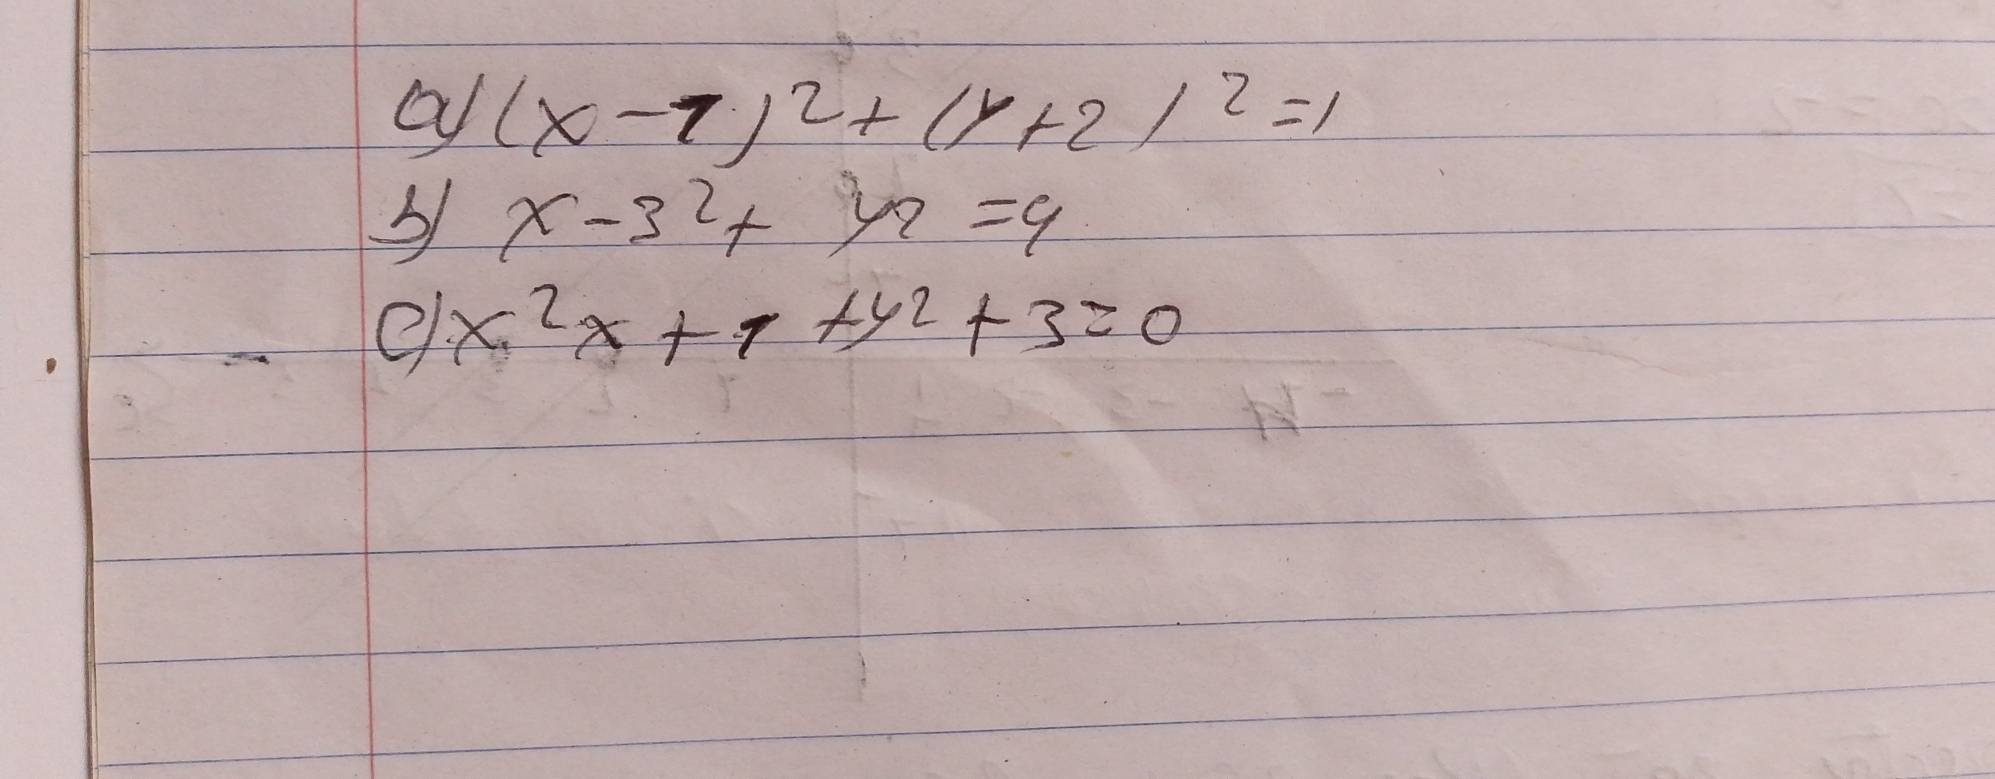 a) (x-1)²+(y+2)²=1
b) x-3²+ y2 =9
c) x²x+1 +y2+3=0